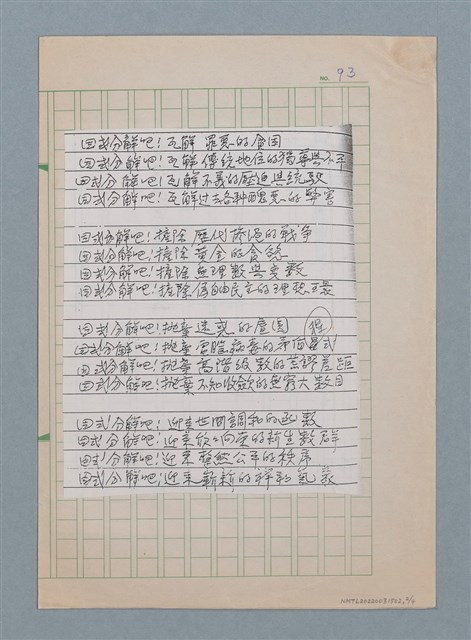 NO. 93
因式分解吧!瓦解 罪惡的貪困
因式分解吧!瓦解 傳統地位的獨尊與不平
因式分解吧!瓦解不義的壓迫與統馭
因式分解吧!瓦解过去各种醜惡的弊害
因式分解吧!摒除 歷代 的戰争
因式分解吧!摒除 黃金的貪婪
因式分解吧!摒除無理數與变數
因式分解吧!摒除假自由民主的
因式分解吧!拋棄迷惑的
因式分解吧!拋棄 病毒的矛盾
因式分解吧!拋棄高階級數的荒謬差距
因式分解吧!拋棄不知收歛的無窮大數目
因式分解吧!迎來世間調和的函數
因式分解吧!迎來欣欣向榮的新生數群
因式分解吧!迎來 公平的秩序
因式分解吧!迎來嶄新的祥和氣